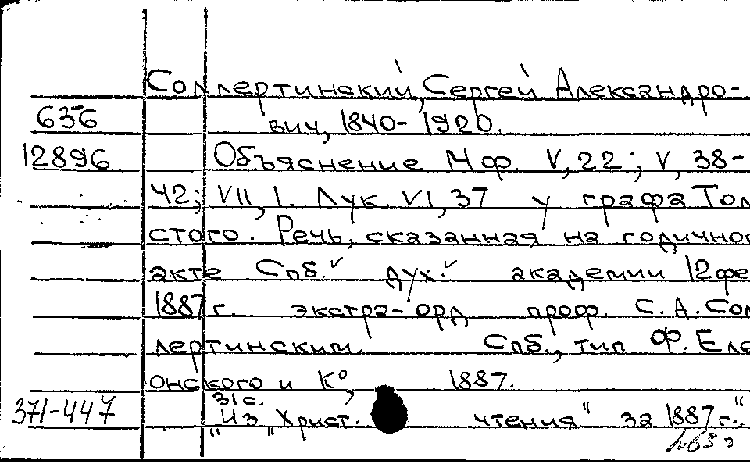 Соллертинский, Сергей Александро-
636 вич, 1840-1920.
12896 Объяснение Мф. V,22; V, 38-
42; VII, 1. Лук. VI, 37 у графа Тол
стого. Речь, сказанная на годичног
акте Спб. дух. академии 12 фе
1887 г. экстра-орд. проф. С. А. Сол
лертинским. Спб., тип. Ф. Еле
онского и К°, 1887.
31 с.
371-447 "Из "Христ. чтения" за 1887 г."